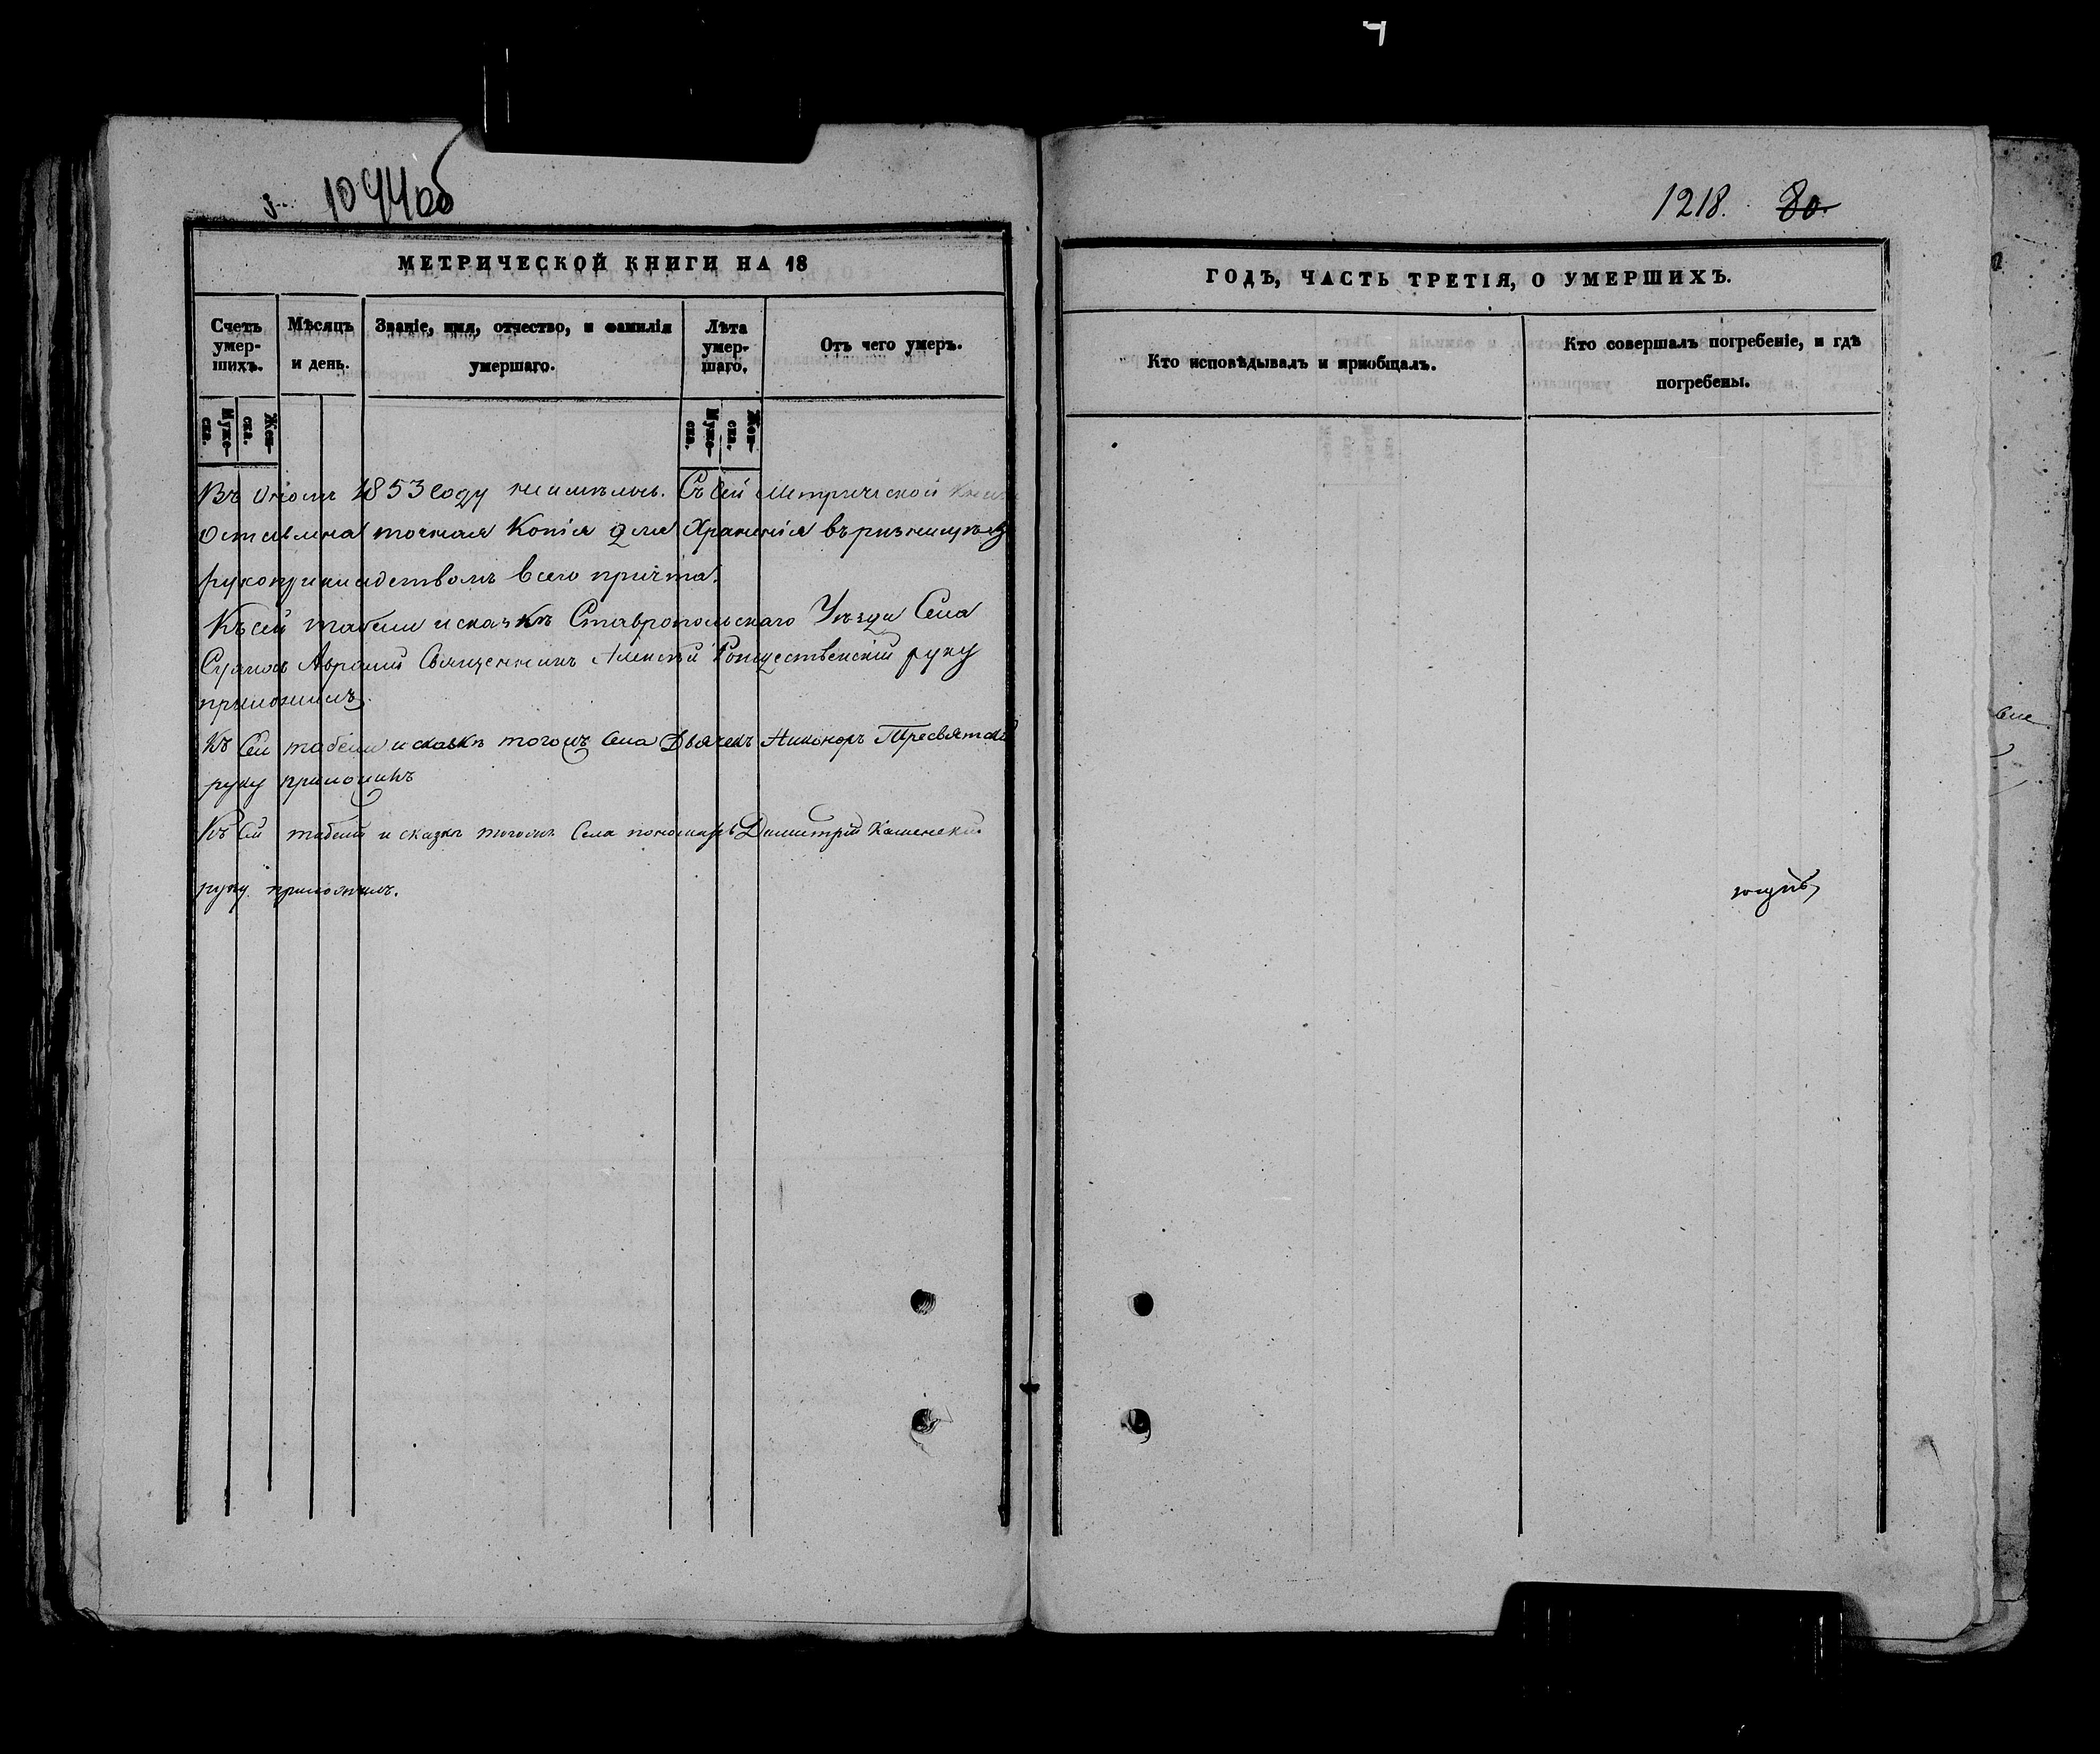 1044об
1218. 80.
МЕТРИЧЕСКОЙ КНИГИ НА 18
ГОДЪ, ЧАСТЬ ТРЕТІЯ, О УМЕРШИХЪ.
Счетъ умер-шихъ.
Мѣсяцъ и день.
Званіе, имя, отчество, и фамилія умершаго.
Лѣта умер-шаго.
Отъ чего умеръ.
Кто исповѣдывалъ и пріобщалъ.
Кто совершалъ погребеніе, и гдѣ погребены.
Муже-ска.
Жен-ска.
Муже-ска.
Жен-ска.
Въ ономъ 1853 году неимѣлось. Съ сей Метрической Книги
оставлена точная Копія для Храненія въ ризницѣ за
рукоприкладствомъ всего причта.
Къ сей табели и сказкѣ Ставропольскаго Уѣзда Села
Священникъ Алексѣй Рождественскій руку
приложилъ.
Къ сей табели и сказкѣ тогожъ Села Дьячекъ Никоноръ Тресвятскій
руку приложилъ
Къ сей табели и сказкѣ тогожъ Села пономарь Димитрій Каменскій
руку приложилъ.